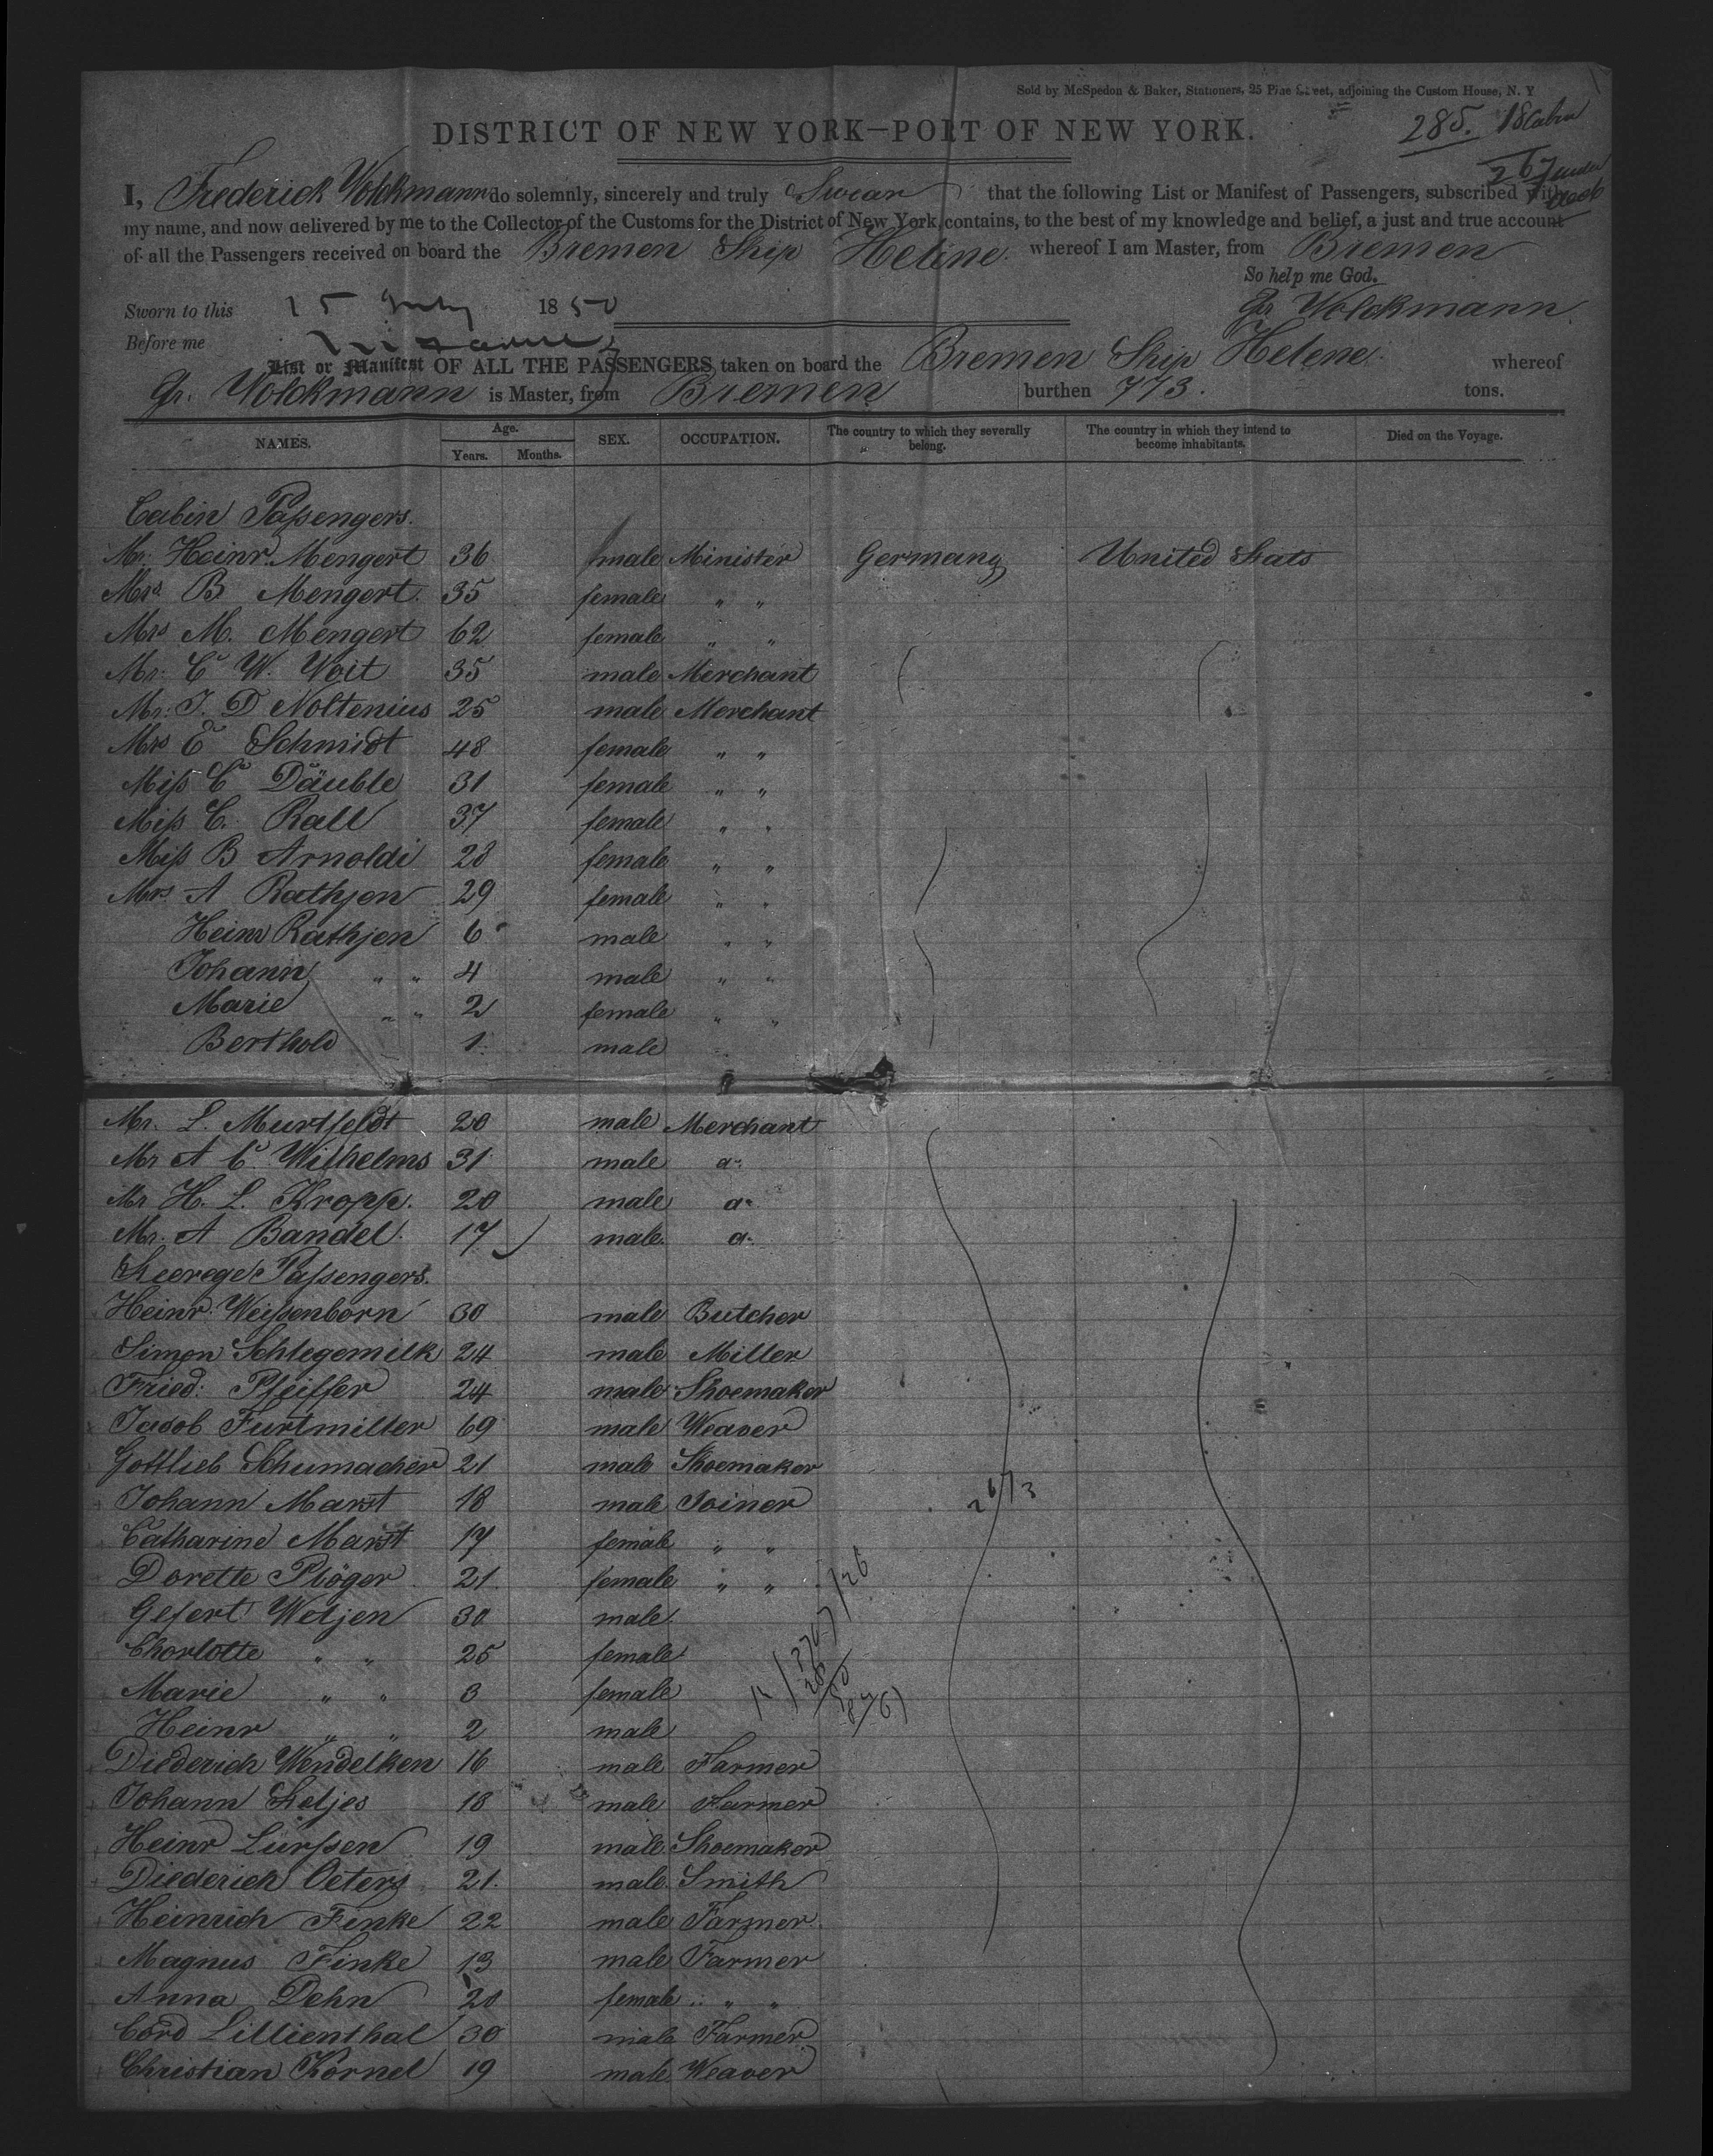 Sold by McSpedon & Baker, Stationers, 25 Pine Street, adjoining the Custom House, N. Y
DISTRICT OF NEW YORK—PORT OF NEW YORK.
285. 18 Cabin
267 under deck
I, Frederick Volckmann do solemnly, sincerely and truly Swear that the following List or Manifest of Passengers, subscribed with
my name, and now delivered by me to the Collector of the Customs for the District of New York, contains, to the best of my knowledge and belief, a just and true account
of all the Passengers received on board the Bremen Ship Helene whereof I am Master, from Bremen
So help me God.
Sworn to this 15 July 1850
Fr Volckmann
Before me
List or Manifest OF ALL THE PASSENGERS taken on board the Bremen Ship Helene whereof
Fr. Volckmann is Master, from Bremen burthen 773. tons.
NAMES. Age. Years. Months. SEX. OCCUPATION. The country to which they severally belong. The country in which they intend to become inhabitants. Died on the Voyage.
Cabin Paßengers.
Mr. Heinr. Mengert 36 male Minister Germany United Stats
Mrs B Mengert. 35 female " "
Mrs M. Mengert 62 female " "
Mr. C W. Voit 35 male Merchant
Mr. J. D Noltenius 25 male Merchant
Mrs E Schmidt 48 female " "
Miß C Däuble 31 female " "
Miß C. Rall 37 female " "
Miß B Arnoldi 28 female " "
Mrs A Rathjen 29 female " "
Heinr Rathjen 6 male " "
Johann " " 4 male " "
Marie " " 2 female " "
Berthold 1 male
Mr. L. Murtfeldt 20 male Merchant
Mr A C. Wilhelms 31 male a"
Mr H. L. Kropp. 20 male a"
Mr. A Bandel. 17 male a"
Steerege Paßengers.
Heinr. Weißenborn 30 male Butcher
Simon Schlegemilk 24 male Miller
Fried: Pfeiffer 24 male Shoemaker
Jacob Furtmiller 69 male Weaver
Gottlieb Schumacher 21 male Shoemaker
Johann Marst 18 male Joiner
Catharine Marst 17 female " "
Dorette Plöger 21. female " "
Gefert Wetjen 30 male
Chorlotte " " 25 female
Marie " " 3 female
Heinr " " 2 male
Diederich Wendelken 16 male Farmer
Johann Stetjes 18 male Farmer
Heinr Lürßen 19 male Shoemaker
Diederich Oeters 21. male Smith
Heinrich Finke 22 male Farmer
Magnus Finke 13 male Farmer
Anna Dehn 20 female " "
Cord Lillienthal 30 male Farmer
Christian Körnel 19 male Weaver